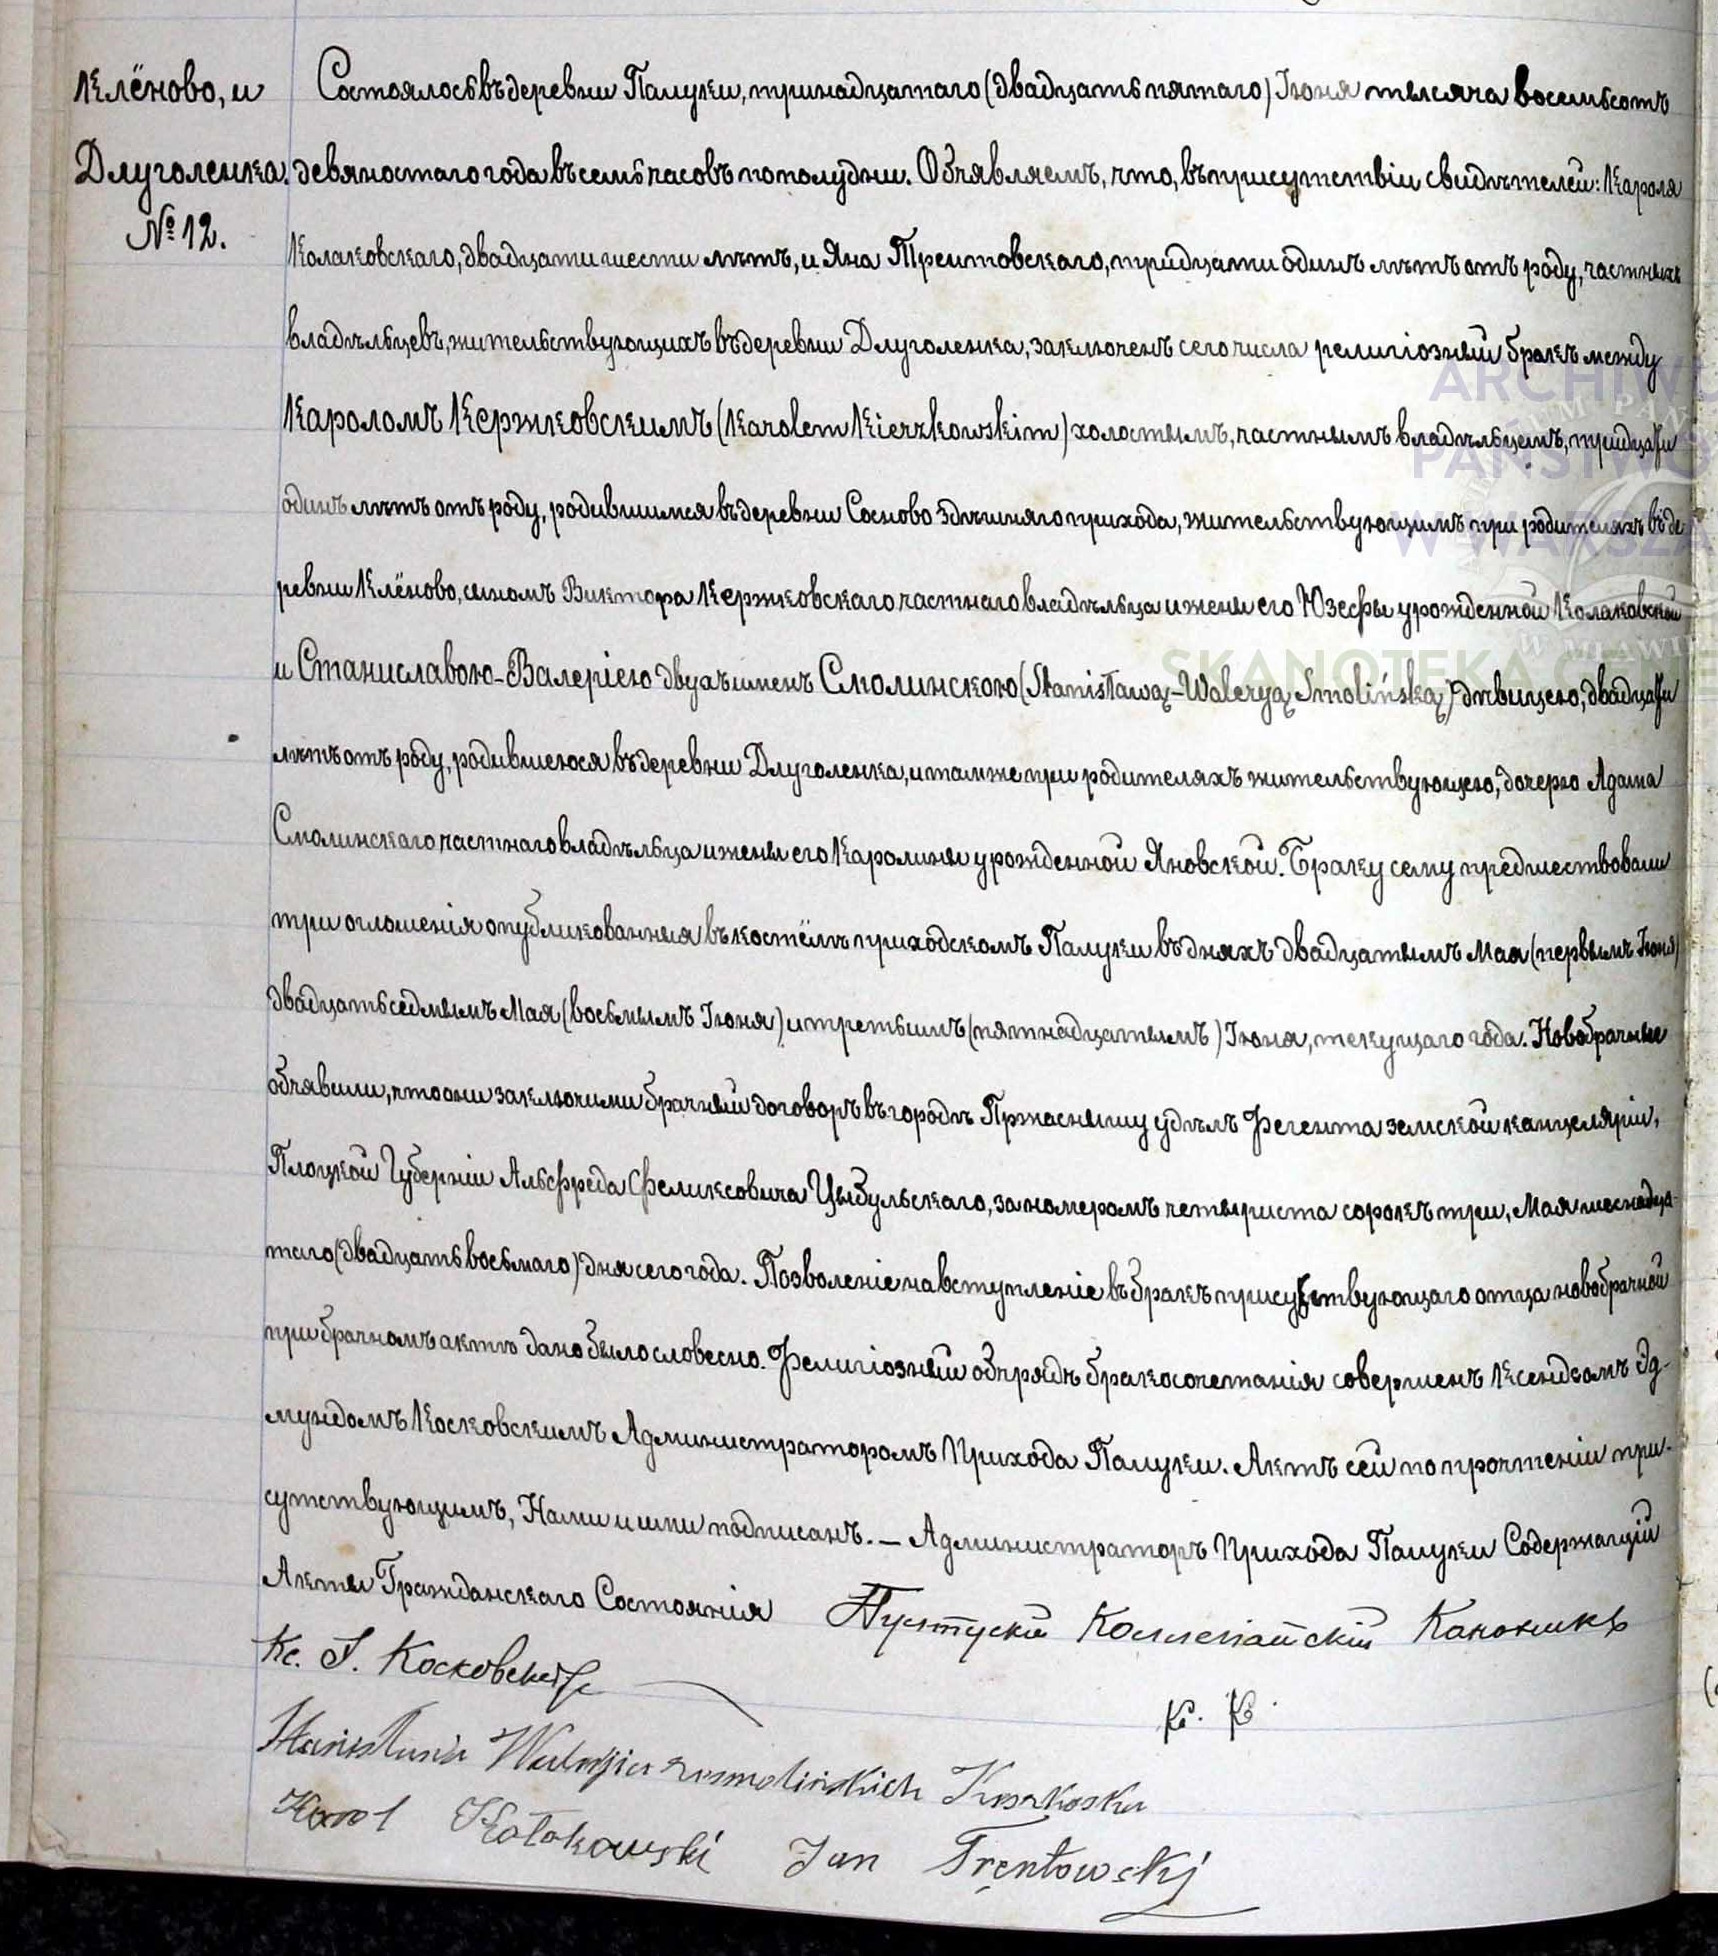 Клёново, и
Длуголенка.
№ 12.
Состоялось въ деревни Пашуки, тринадцатаго (двадцать пятаго) Іюня тысяча восемьсотъ
девяностаго года въ семь часовъ пополудни. Объявляемъ, что, въ присутствіи свидѣтелей: Кароля
Колаковскаго, двадцати шести лѣтъ, и Яна Трентовскаго, тридцати одинъ лѣтъ отъ роду, частныхъ
владѣльцевъ, жительствующихъ въ деревни Длуголенка, заключенъ сего числа религіозный бракъ между
Кароломъ Кержковскимъ (Karolem Kierzkowskim) холостымъ, частнымъ владѣльцемъ, тридцати
одинъ лѣтъ отъ роду, родившимся въ деревни Сосново здѣшняго прихода, жительствующимъ при родителяхъ въ де
ревни Клёново, сыномъ Виктора Кержковскаго частнаго владѣльца и жены его Юзефы урожденной Колаковской
и Станиславою-Валеріею двухъ именъ Смолинскою (Stanisławą-Waleryą Smolińską) дѣвицею, двадцати
лѣтъ отъ роду, родившеюся въ деревни Длуголенка, и тамже при родителяхъ жительствующею, дочерю Адама
Смолинскаго частнаго владѣльца и жены его Каролины урожденной Яновской. Браку сему предшествовали
три оглошенія опубликованныя въ костёлѣ приходскомъ Пашуки въ дняхъ двадцатымъ Мая (первымъ Іюня)
двадцать седмымъ Мая (восьмымъ Іюня) и третьимъ (пятнадцатымъ) Іюня, текущаго года. Новобрачные
объявили, что они заключили брачный договоръ въ городѣ Пржаснышу у дѣлъ Регента земской канцеляріи,
Плоцкой Губерніи Альфреда Феликсовича Цыбульскаго, за номеромъ четыриста сорокъ три, Мая шеснадца-
таго (двадцать восьмаго) дня сего года. Позволеніе на вступленіе въ бракъ присутствующаго отца новобрачной
при брачномъ актѣ дано было словесно. Религіозный обрядъ бракосочетанія совершенъ Ксендзомъ Эд-
мундомъ Косковскимъ Администраторомъ Прихода Пашуки. Актъ сей по прочтеніи при-
сутствующимъ, Нами и ими подписанъ. — Администраторъ Прихода Пашуки Содержащій
Акты Гражданскаго Состоянія Пултускій Коллегіатскій Каноникъ
Кс. Э. Косковскій
К. К.
Stanisława Waleryja z Smolińskich Kierzkoska
Karol Kołakowski Jan Trentowski
ARCHIWU
PAŃSTWO
W WARSZA
SKANOTEKA GENE